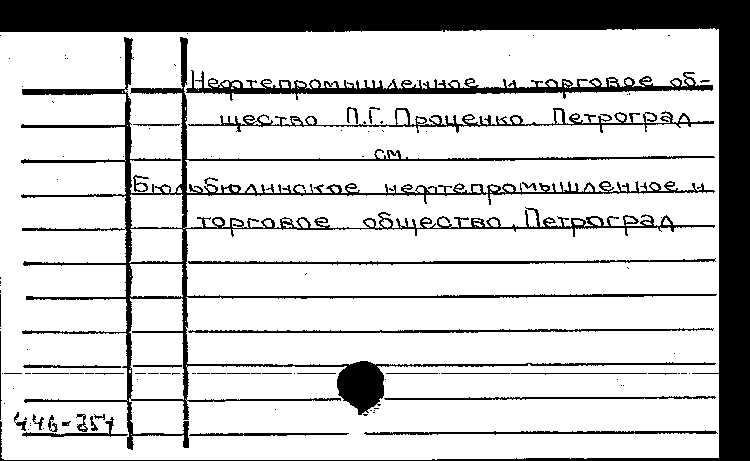 Нефтепромышленное и торговое об-
щество П.Г. Проценко. Петроград
см.
Бюльбюлинское нефтепромышленное и
торговое общество, Петроград
446-354